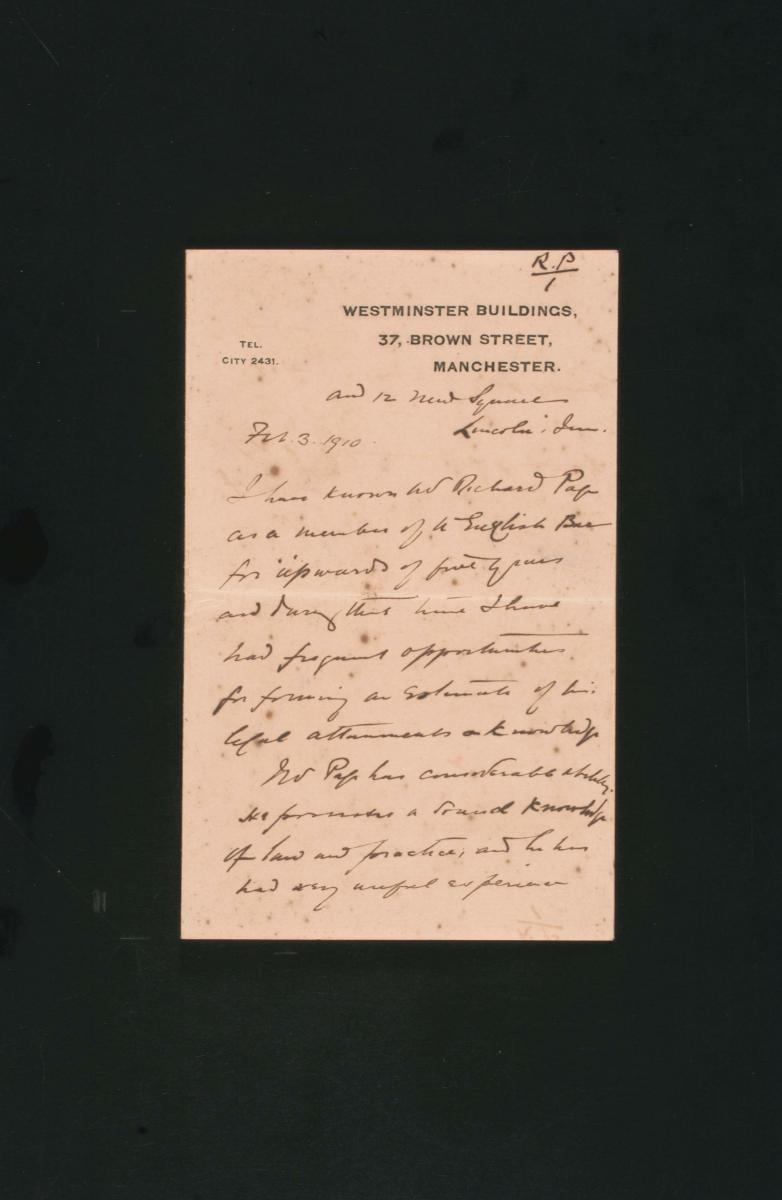 R.P
1
WESTMINSTER BUILDINGS,
37, BROWN STREET,
MANCHESTER.
TEL.
CITY 2431.
and 12 New Square
Lincoln's Inn.
Feb. 3. 1910.
I have known Mr Richard Pape
as a member of the English Bar
for upwards of five years
and during that time I have
had frequent opportunities
for forming an estimate of his
legal attainments & knowledge
Mr Pape has considerable ability.
He possesses a sound knowledge
of law and practice, and he has
had very useful experience